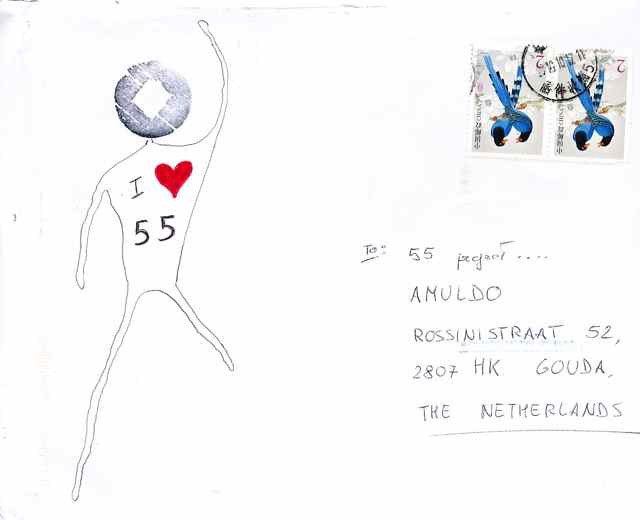 I ❤
55
2 2
To: 55 project....
AMULDO
ROSSINISTRAAT 52,
2807 HK GOUDA,
THE NETHERLANDS